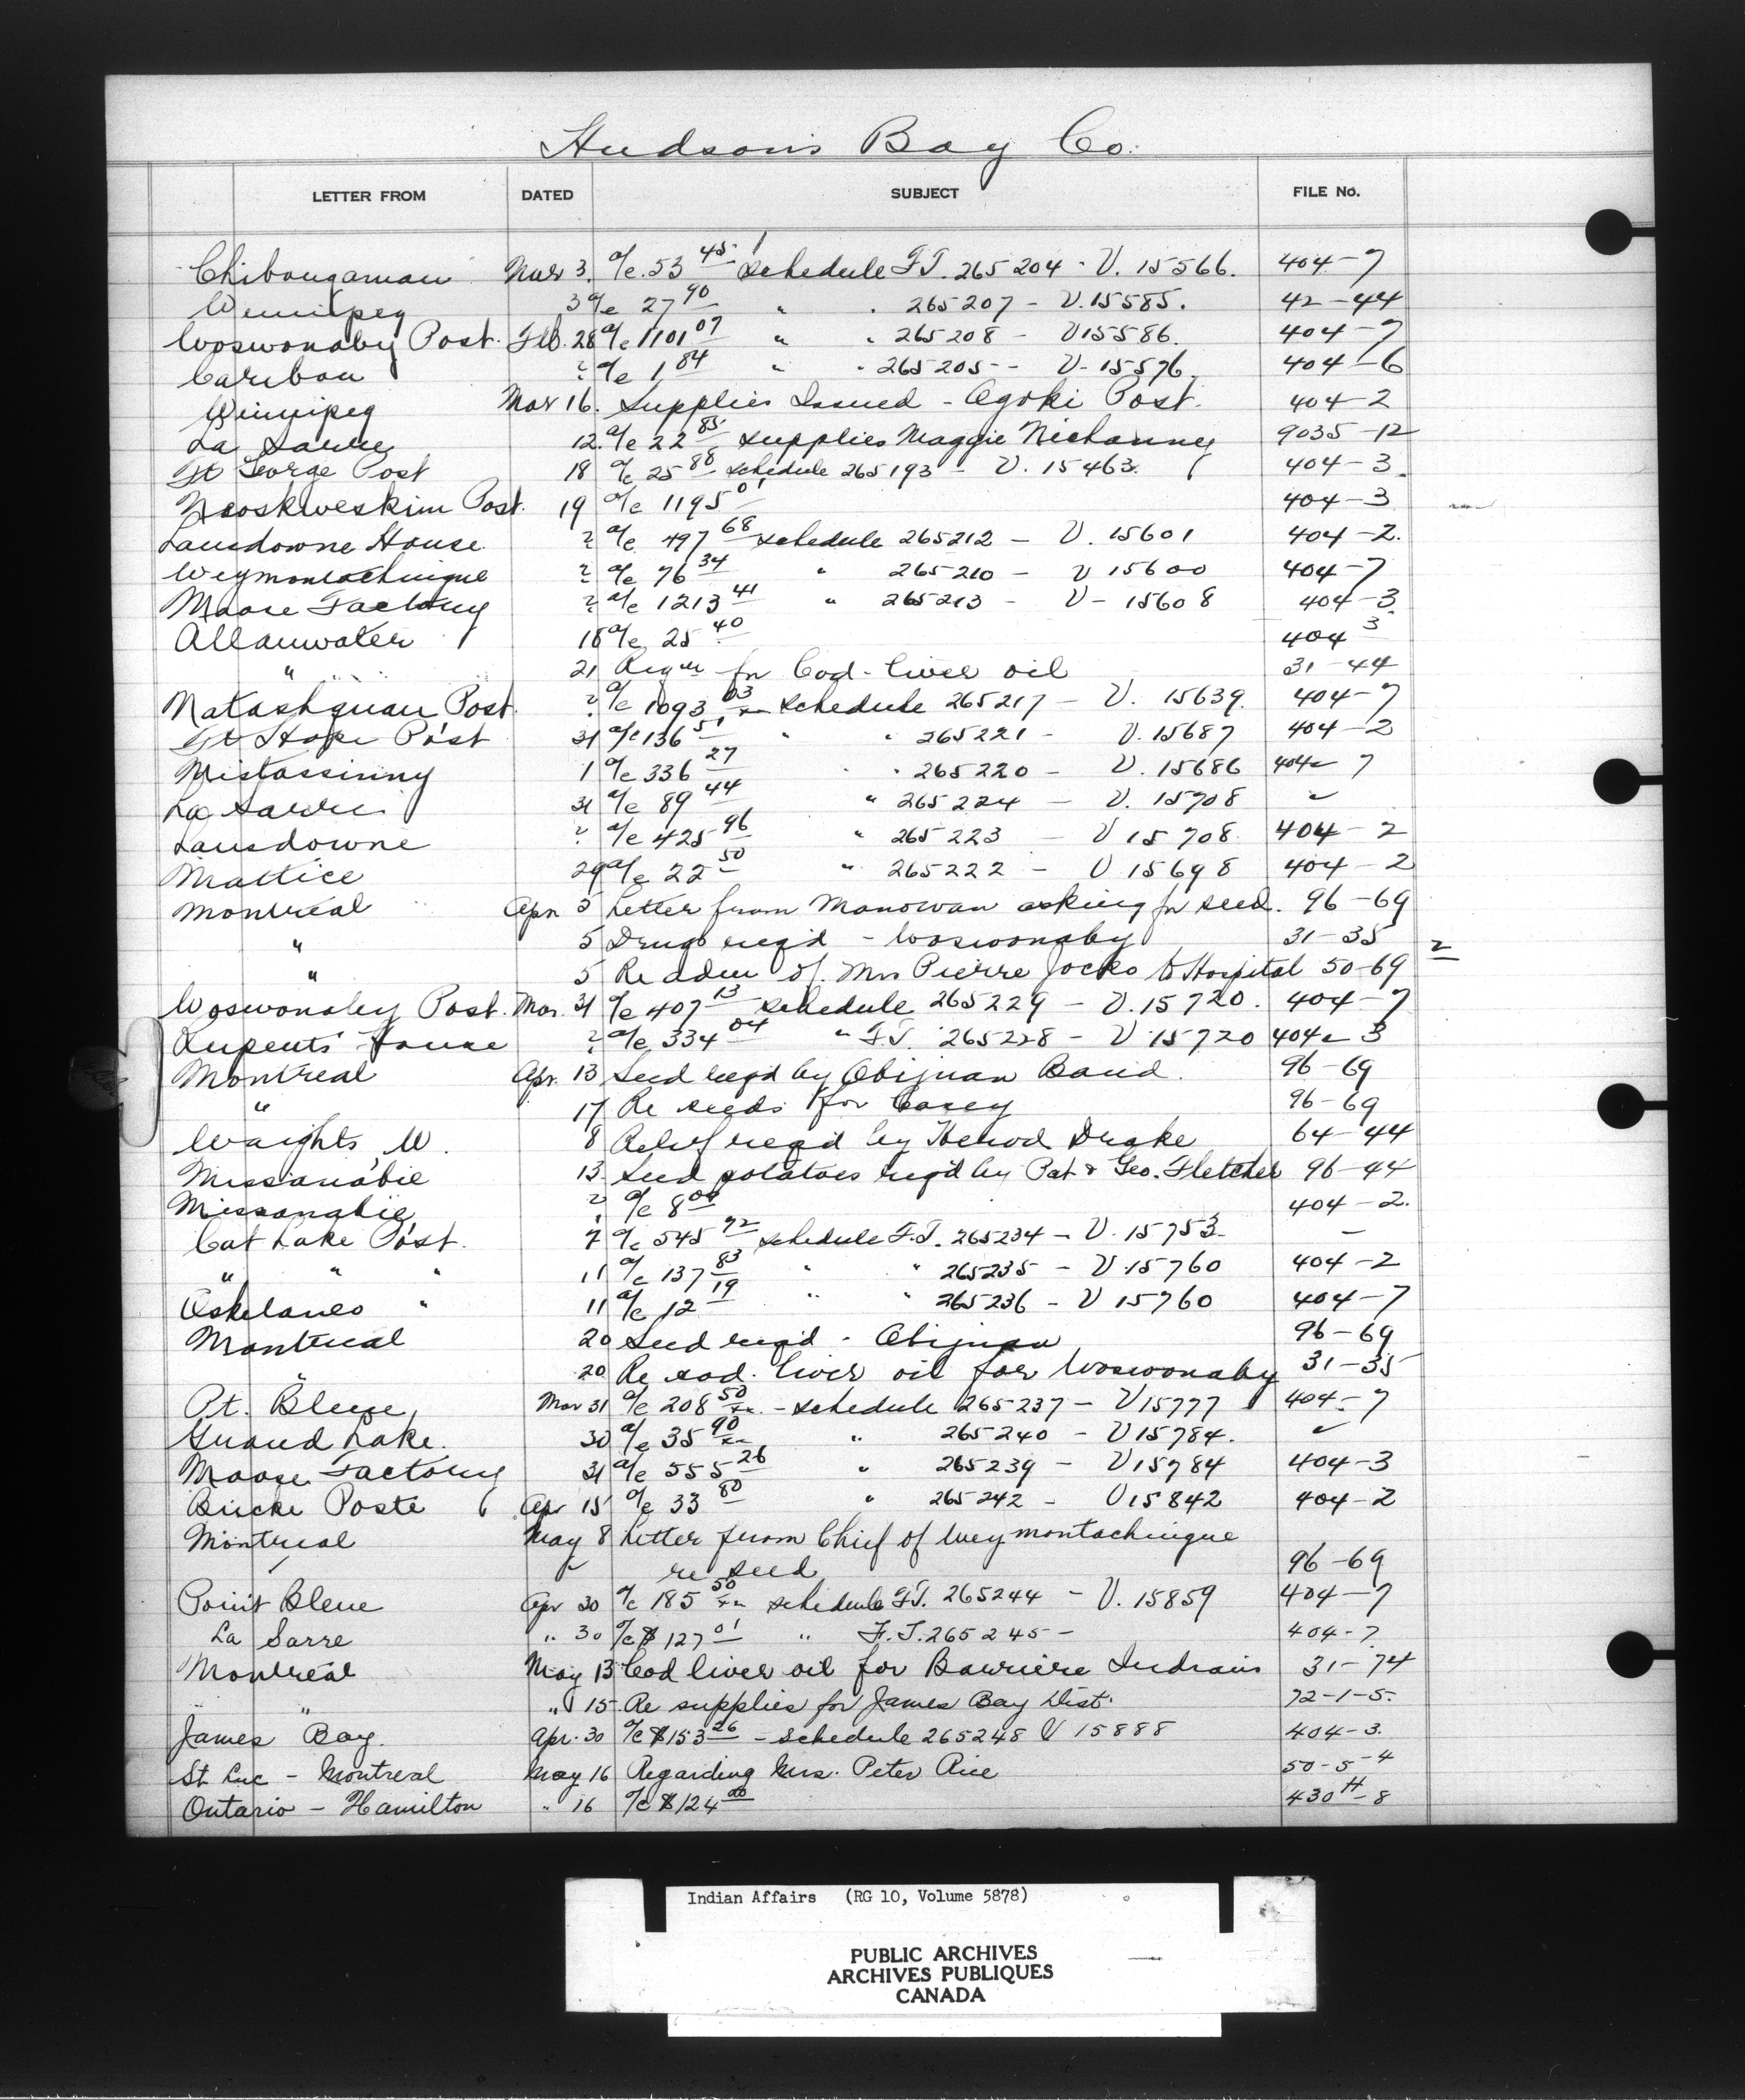 Hudson's Bay Co.
LETTER FROM DATED SUBJECT FILE No.
Chibougamau Mar 3. a/c. 53 45 schedule F.T. 265204 - V. 15566. 404-7
Winnipeg 3 a/c 27 90 " " 265207 - V. 15585. 42-44
Woswonaby Post. Feb. 28 a/c 1101 07 " " 265208 - V 15586. 404-7
Caribou ? a/c 1 84 " " 265205 - V- 15576. 404-6
Winnipeg Mar 16. Supplies Issued - Ogoki Post. 404-2
La Sarre 12. a/c 22 85 supplies Maggie 9035-12
Ft George Post 18 a/c 25 88 schedule 265193 - V. 15463. 404-3.
Neoskweskim Post. 19 a/c 1195 01 404-3
Lansdowne House ? a/c 497 68 schedule 265212 - V. 15601 404-2.
Weymontachingue ? a/c 76 34 " 265210 - V 15600 404-7
Moose Factory ? a/c 1213 41 " 265213 - V- 15608 404-3.
Allanwater 18 a/c 25 40 404 3
" 21 Reqn for Cod-liver oil 31-44
Natashquan Post. ? a/c 1093 03 schedule 265217 - V. 15639. 404-7
Ft Hope Post 31 a/c 136 51 " " 265221 - V. 15687 404-2
Mistassinny 1 a/c 336 27 " " 265220 - V. 15686 404-7
La Sarre 31 a/c 89 44 " 265224 - V. 15708 "
Lansdowne ? a/c 425 96 " 265223 - V 15708. 404-2
Mattice 29 a/c 22 50 " 265222 - V 15698 404-2
Montreal Apr 5 Letter from Manowan asking for seed. 96-69
" 5 Drugs req'd - Woswonaby 31-35 2
" 5 Re adm of Mrs Pierre Jocko to Hospital 50-69
Woswonaby Post. Mar. 31 a/c 407 13 schedule 265229 - V. 15720. 404-7
Ruperts House ? a/c 334 04 " F.T. 265228 - V 15720 404-3
Montreal Apr. 13 Seed reqd by Obijuan Band. 96-69
" 17 Re seeds for Casey 96-69
Waights, W. 8 Relief reqd by Herod Drake 64-44
Missanabie 13 Seed potatoes reqd by Pat & Geo. Fletcher 96-44
Missanabie ? a/c 8 00 404-2.
Cat Lake Post. 7 a/c 545 72 schedule F.T. 265234 - V. 15753. -
" " " 11 a/c 137 83 " " 265235 - V. 15760 404-2
Oskelaneo " 11 a/c 12 19 " " 265236 - V 15760 404-7
Montreal 20 Seed reqd - Obijuan 96-69
" 20 Re cod. liver oil for Woswonaby 31-35
Pt. Bleue Mar 31 a/c 208 50 - schedule 265237 - V 15777 404-7
Grand Lake. 30 a/c 35 90 " 265240 - V 15784. "
Moose Factory 31 a/c 555 26 " 265239 - V 15784 404-3
Bucke Poste Apr 15 a/c 33 80 " 265242 - V 15842 404-2
Montreal May 8 Letter from Chief of Weymontachingue
re seed 96-69
Point Bleue Apr 30 a/c 185 50 schedule F.T. 265244 - V. 15859 404-7
La Sarre " 30 a/c $127 01 " F.T. 265245 - 404-7.
Montreal May 13 Cod liver oil for Barriere Indians 31-74
" " 15 Re supplies for James Bay Dist. 72-1-5.
James Bay. Apr. 30 a/c $153 26 - schedule 265248 V 15888 404-3.
St. Luc - Montreal May 16 Regarding Mrs. Peter Rice 50-5-4
Ontario - Hamilton " 16 a/c $124 20 430 H-8
Indian Affairs (RG 10, Volume 5878)
PUBLIC ARCHIVES
ARCHIVES PUBLIQUES
CANADA